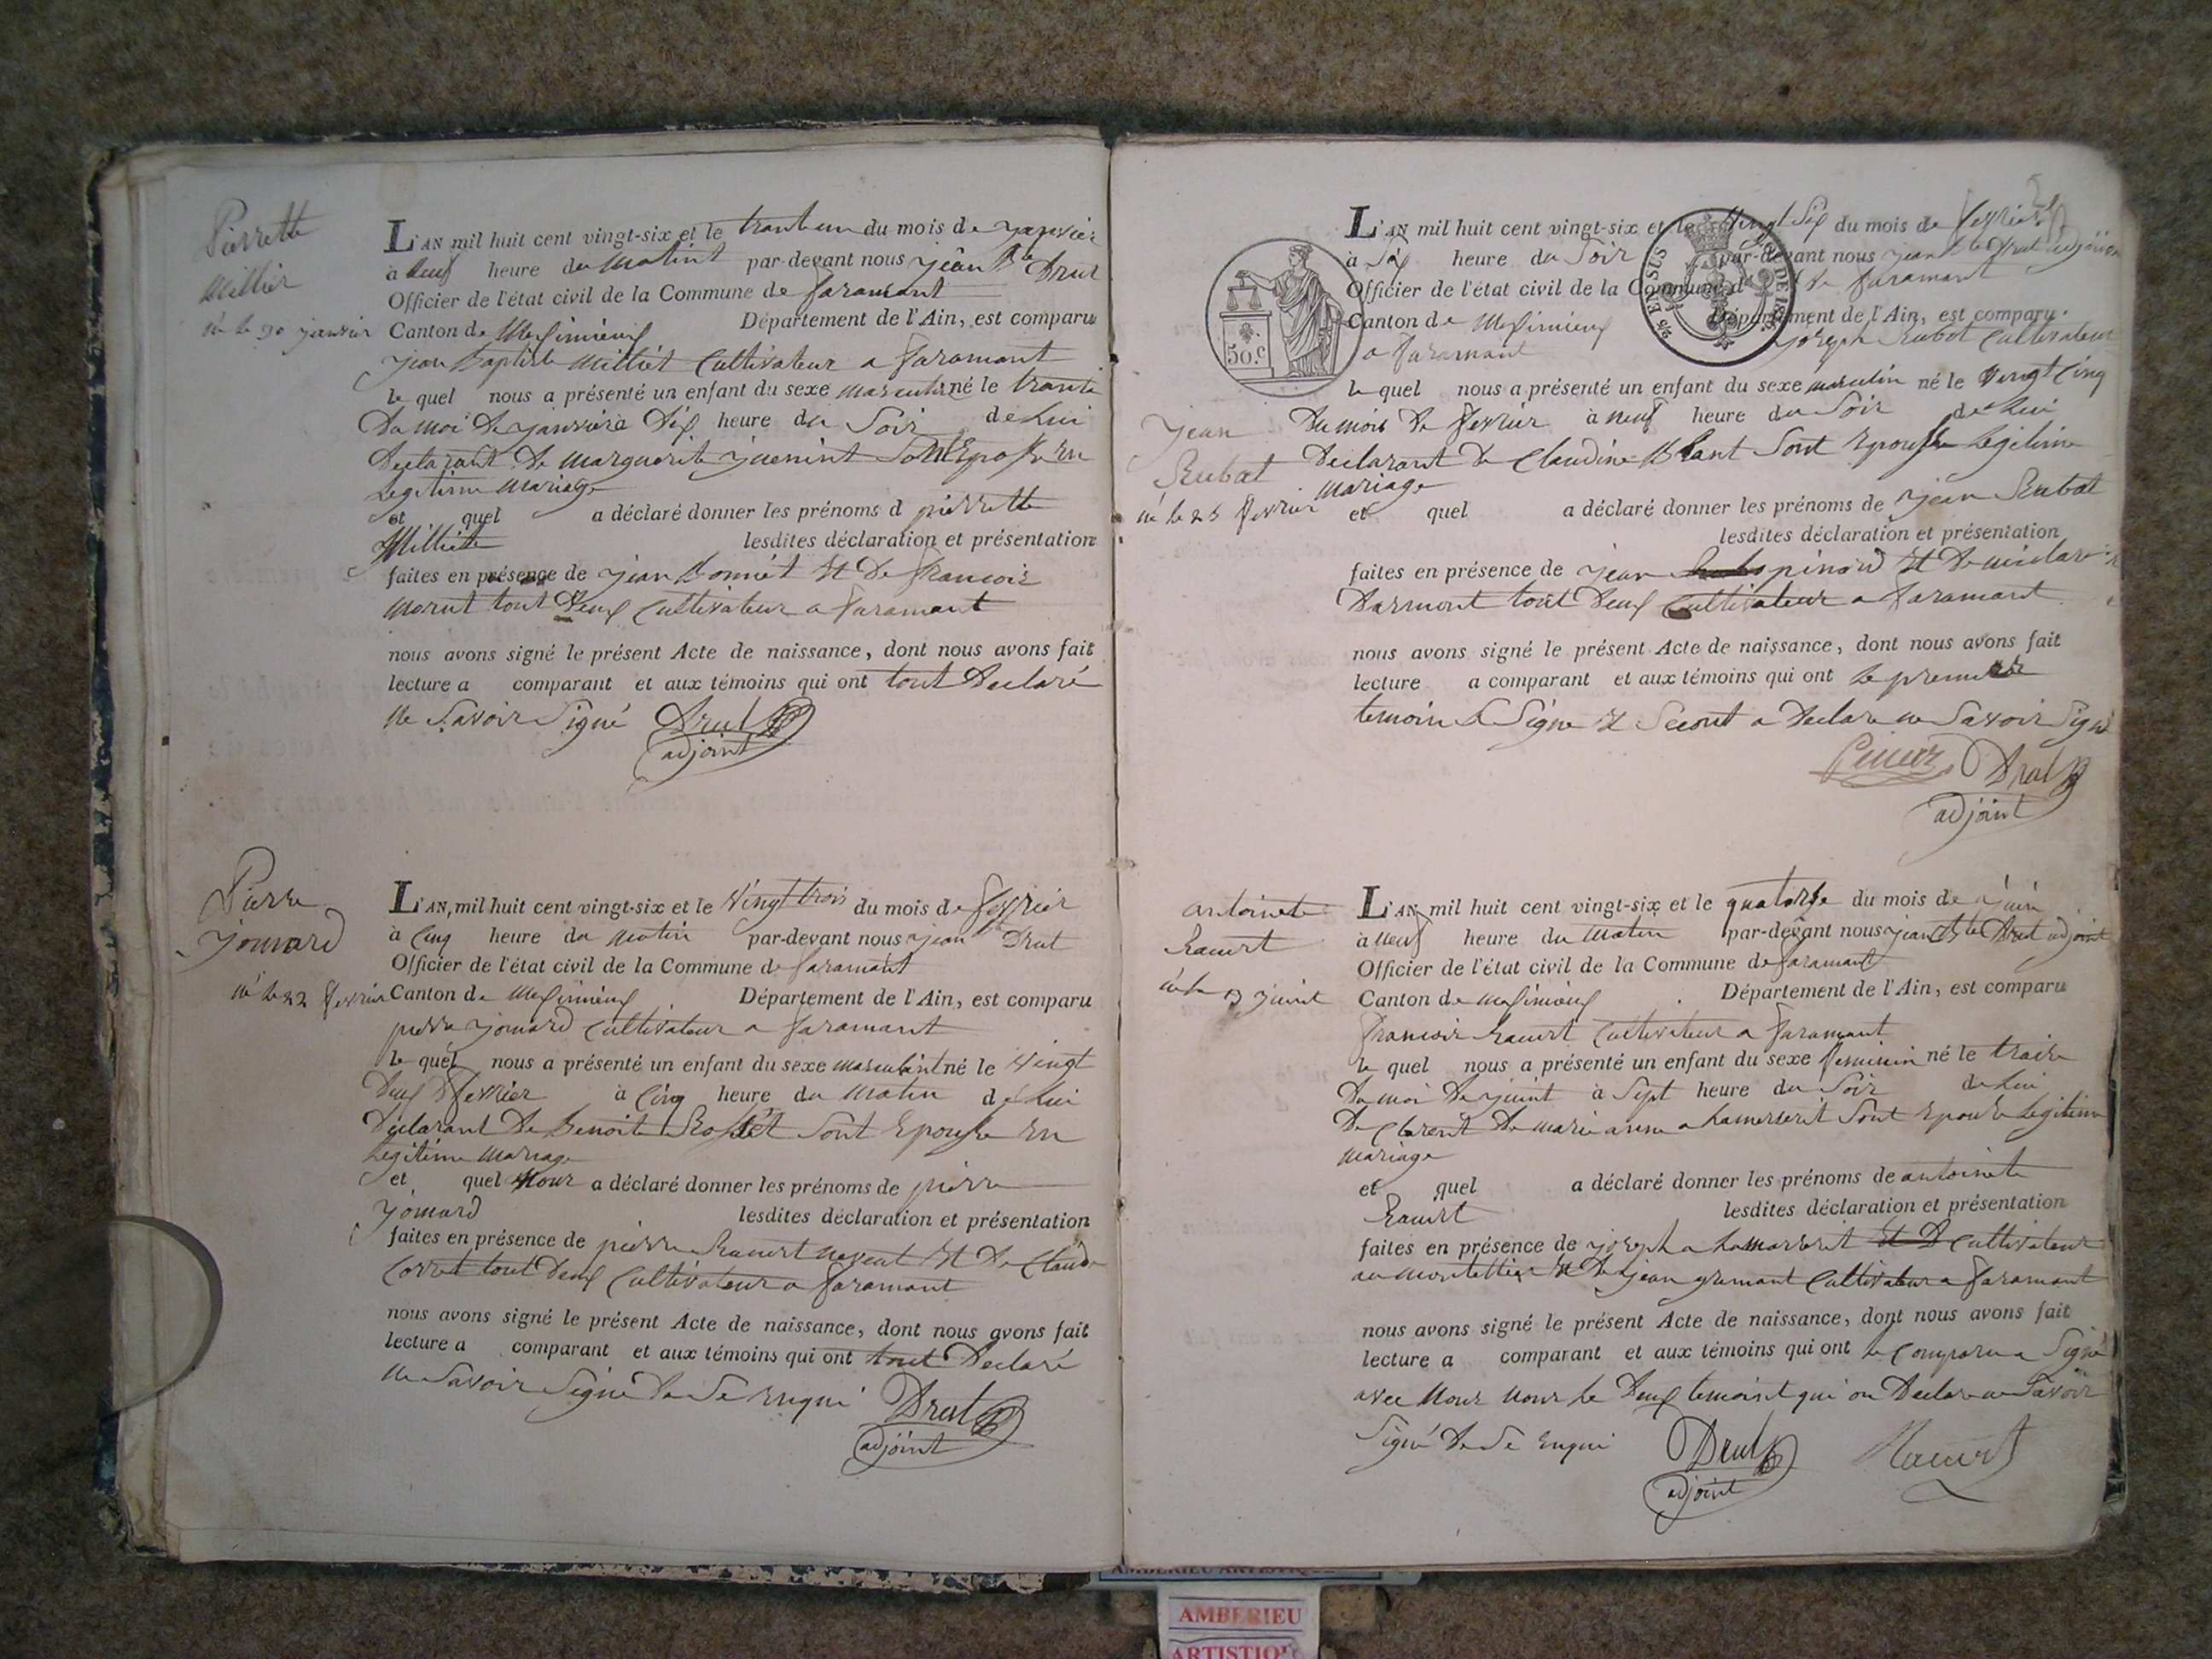 Pierrette
Millier
né le 30 janvier
L'AN mil huit cent vingt-six et le trante un du mois de janvier
à neuf heure du matint par-devant nous jean Bte Drut
Officier de l'état civil de la Commune de faramant
Canton de Meximieux Département de l'Ain, est comparu
jean Baptiste Milliet Cultivateur a faramant
le quel nous a présenté un enfant du sexe masculin né le trante
Du moi De janvier à Dix heure du Soir de Lui
Declarant De marguerite juenint Sont Epouse En
Legitime mariage
et quel a déclaré donner les prénoms d pierrette
Milliete lesdites déclaration et présentation
faites en présence de jean Bonnet Et De francois
morut tout Deux Cultivateur a faramant
nous avons signé le présent Acte de naissance, dont nous avons fait
lecture a comparant et aux témoins qui ont tout Declaré
Ne Savoir Signé Drut
adjoint
Pierre
jomard
né le 22 fevrier
L'AN, mil huit cent vingt-six et le Vingt trois du mois de fevrier
à Cinq heure du matin par-devant nous jean Bte Drut
Officier de l'état civil de la Commune de faramant
Canton de Meximieux Département de l'Ain, est comparu
pierre jomard Cultivateur a faramant
le quel nous a présenté un enfant du sexe masculint né le Vingt
Deux fevrier à Cinq heure du matin de Lui
Declarant De Benoite Rosset Sont Epouse En
Legitime mariage
et quel Nour a déclaré donner les prénoms de pierre
jomard lesdites déclaration et présentation
faites en présence de pierre Racurt neveut Et De Claude
Corret tout Deux Cultivateur a faramant
nous avons signé le présent Acte de naissance, dont nous avons fait
lecture a comparant et aux témoins qui ont tout Declaré
Ne Savoir Signé De Se Enqui Drut
adjoint
L'AN mil huit cent vingt-six et le Vingt Six du mois de fevrier
à Six heure du Soir par-devant nous jean Bte Drut adjoint
Officier de l'état civil de la Commune d de faramant
Canton de Meximieux Département de l'Ain, est comparu
joseph Rubat Cultivateur
a faramant
50.c
le quel nous a présenté un enfant du sexe masculin né le Vingt Cinq
Du mois De fevrier à neuf heure du Soir de Lui
jean
Rubat
né le 25 fevrier
Declarant De Claudine Blant Sont Epouse Legitime
mariage
et quel a déclaré donner les prénoms de jean Rubat
lesdites déclaration et présentation
faites en présence de jean pinoid Et De
Darmont tout Deux Cultivateur a faramant
nous avons signé le présent Acte de naissance, dont nous avons fait
lecture a comparant et aux témoins qui ont Le premiere
temoin Signe Et Secont a Declare ne Savoir Signé
Drut
adjoint
antoinete
Racurt
né le 13 juint
L'AN mil huit cent vingt-six et le quatorse du mois de juin
à neuf heure du matin par-devant nous jean Bte Drut adjoint
Officier de l'état civil de la Commune de faramant
Canton de Meximieux Département de l'Ain, est comparu
francois Racurt Cultivateur a faramant
le quel nous a présenté un enfant du sexe feminin né le traise
Du moi De juint à Sept heure du Soir de Lui
De Clarent De marie anne Sont Epouse Legitime
mariage
et quel a déclaré donner les prénoms de antoinete
Racurt lesdites déclaration et présentation
faites en présence de joseph Cultivateur
au montellier Et De jean gramont Cultivateur a faramant
nous avons signé le présent Acte de naissance, dont nous avons fait
lecture a comparant et aux témoins qui ont le Comparu a Signé
avec Nour Nour Le Deux temoint qui on Declare ne Savoir
Signé De Se Enqui Drut Racurt
adjoint
AMBERIEU
ARTISTIQUE